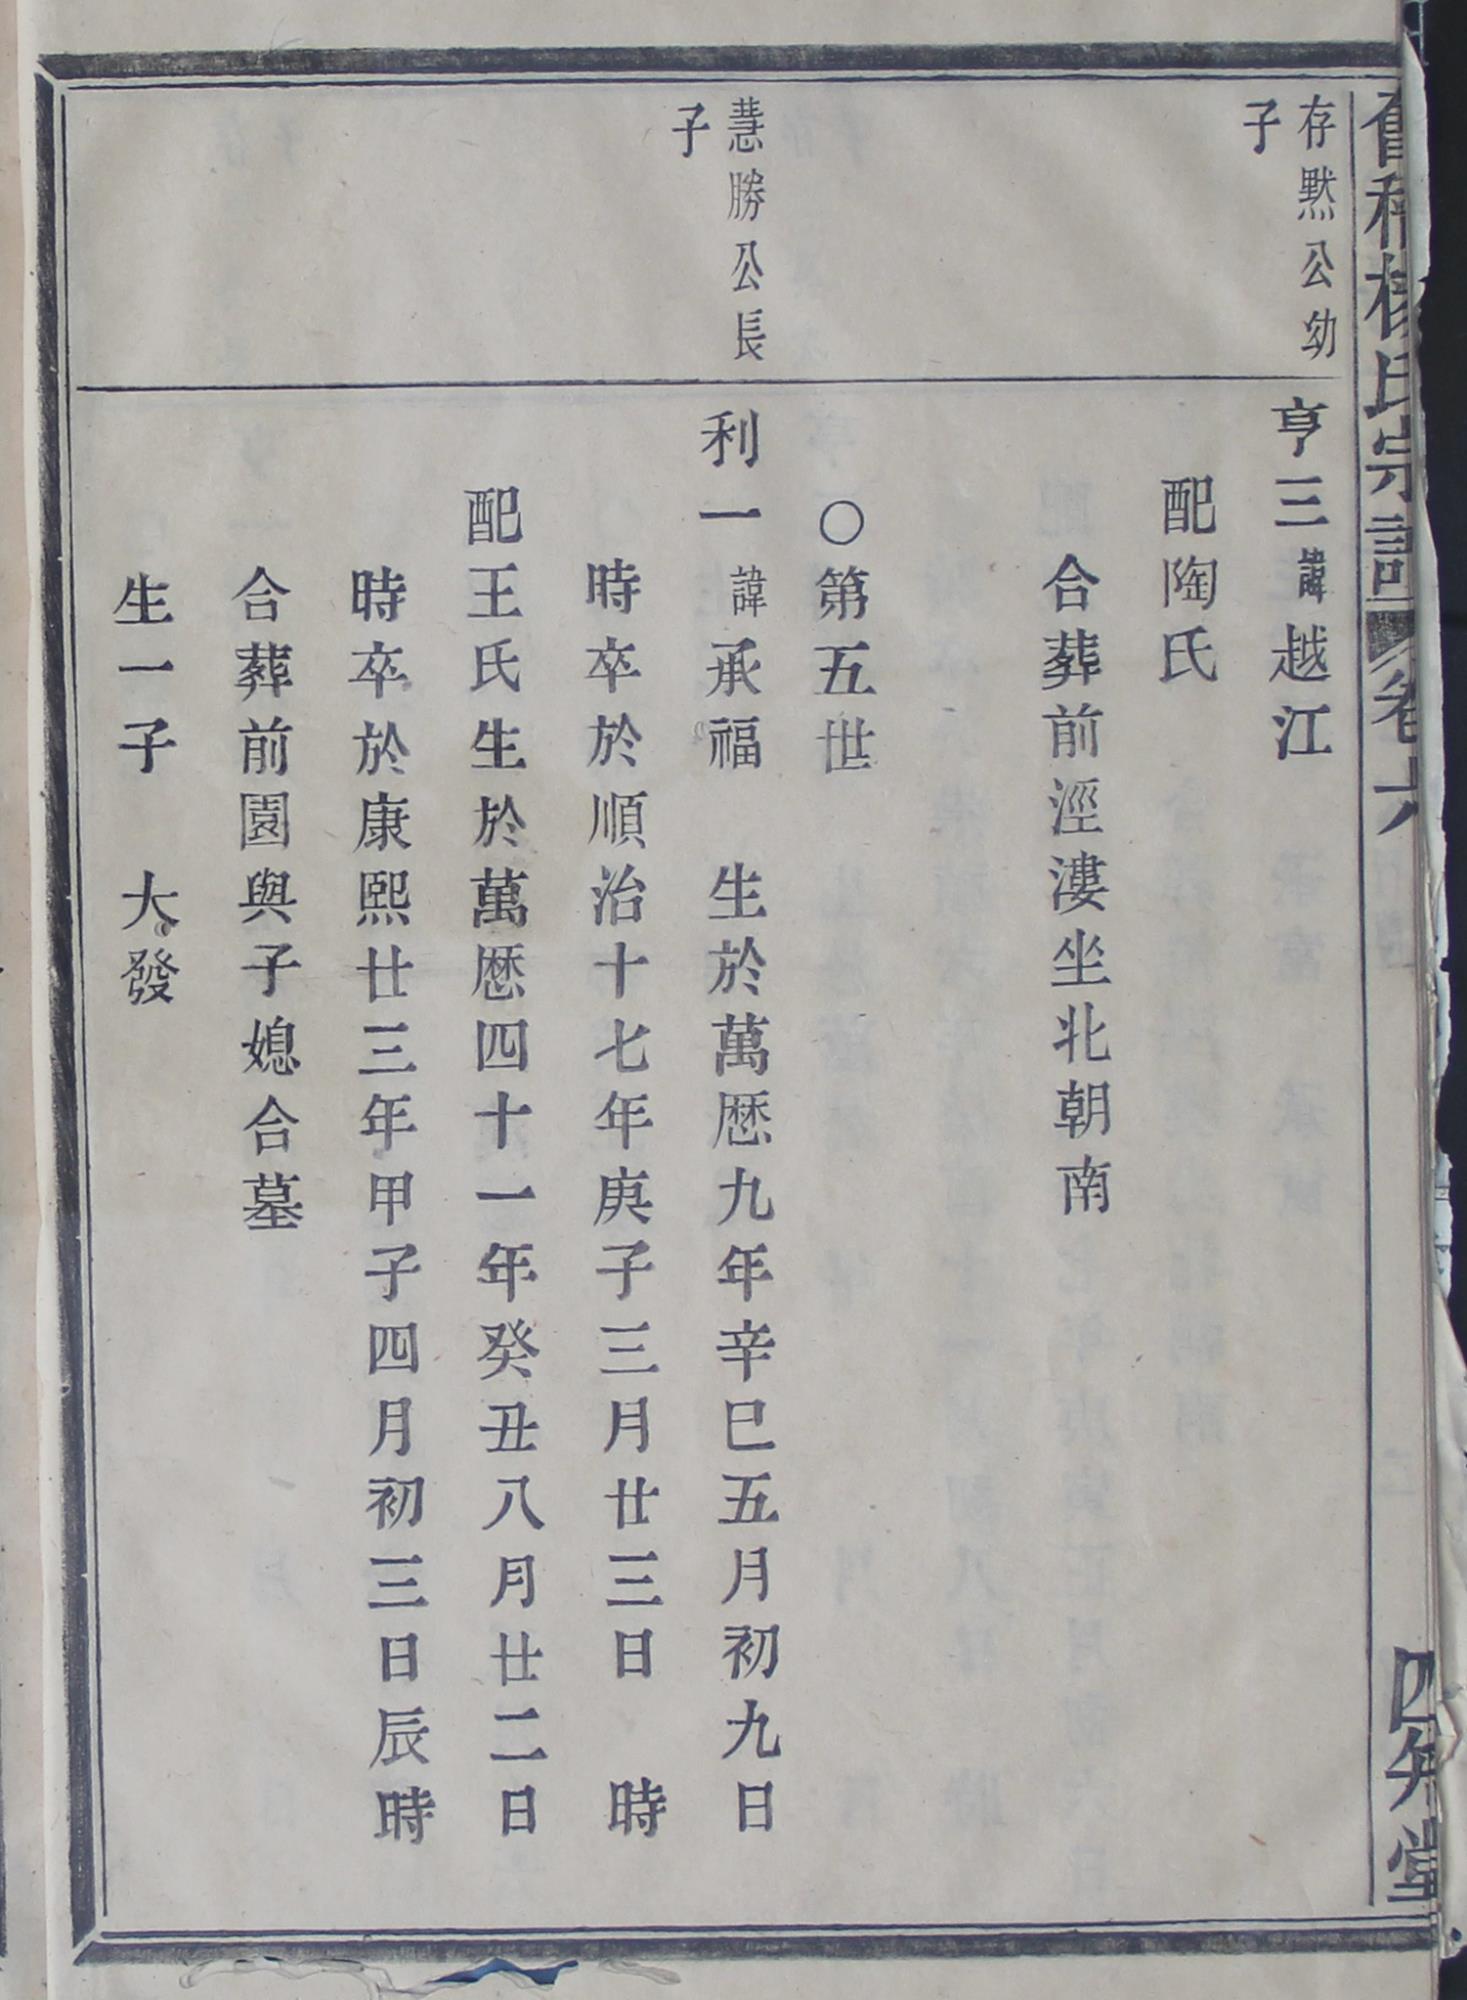 楊氏宗譜 卷六 四知堂
存默公幼
子
亨三諱越江
配陶氏
合葬前涇漊坐北朝南
○第五世
慧勝公長
子
利一諱承福 生於萬歷九年辛巳五月初九日
時卒於順治十七年庚子三月廿三日 時
配王氏生於萬歷四十一年癸丑八月廿二日
時卒於康熙廿三年甲子四月初三日辰時
合葬前園與子媳合墓
生一子 大發